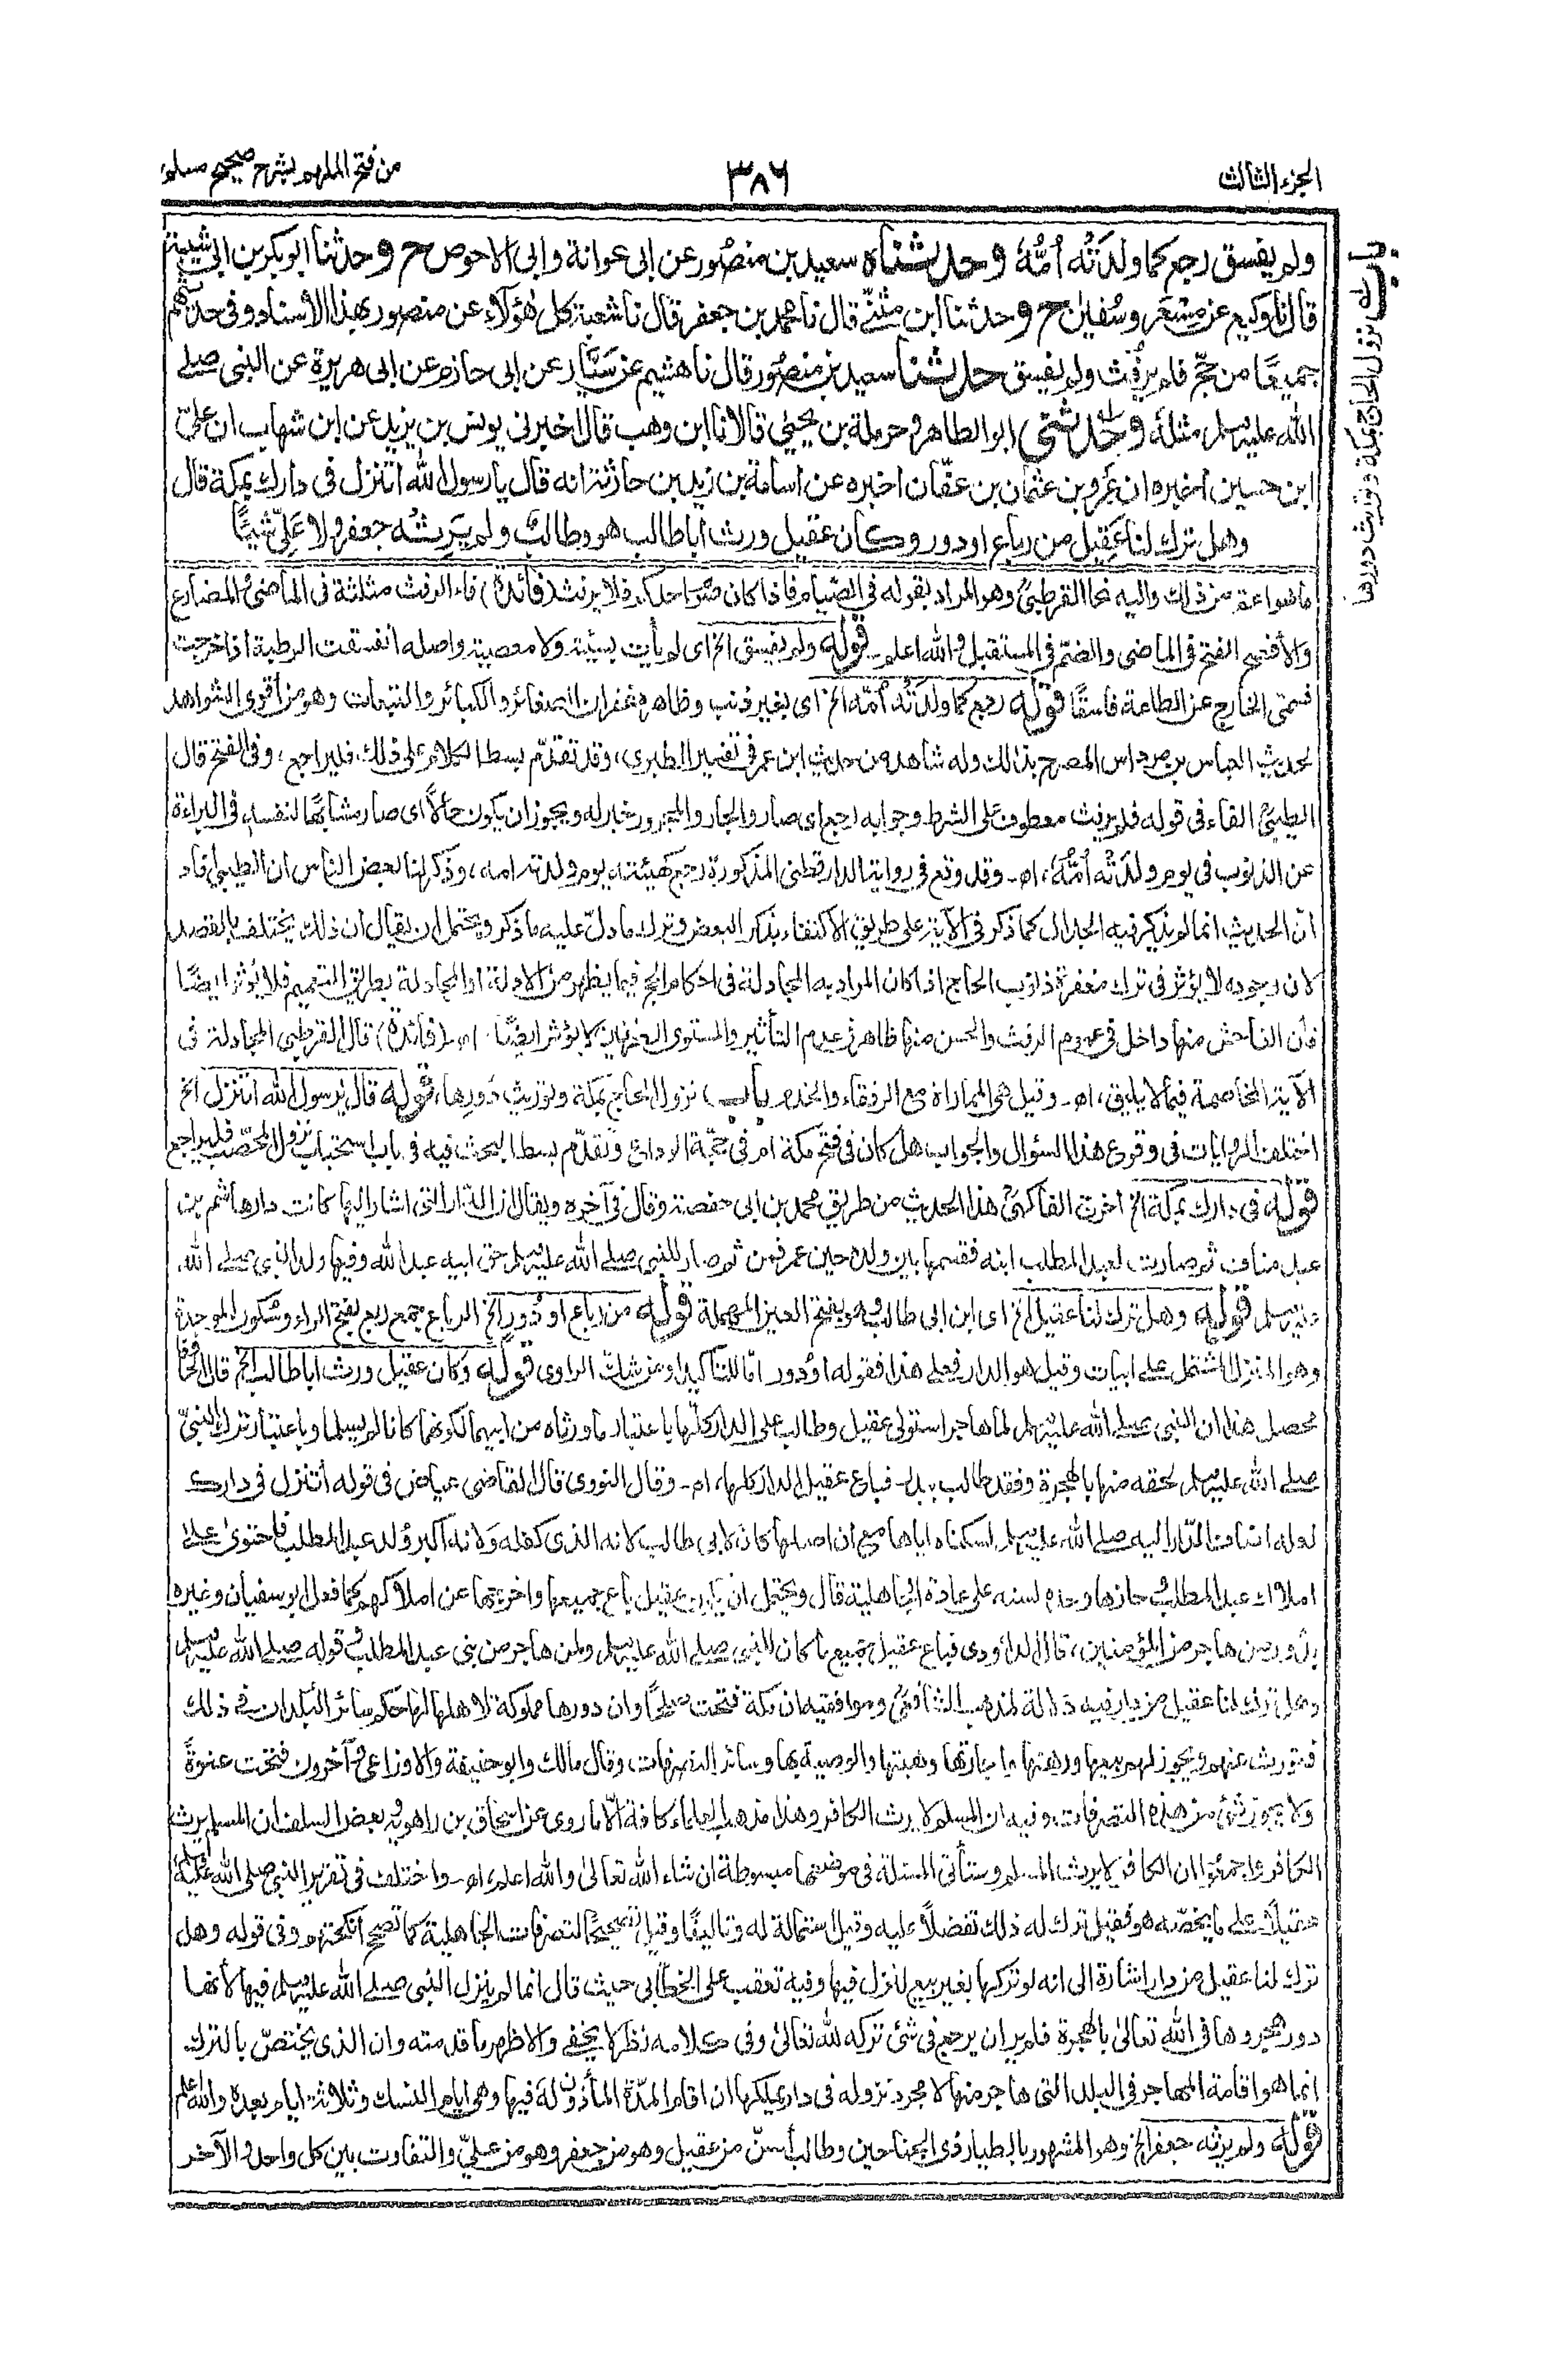 الجزء الثالث
٣٨٦
من فتح الملهم بشرح صحيح مسلم
باب نزول الحاج بمكة وتوريث دورها
ولم يفسق رجع كما ولدَتْه اُمُّهٗ وحدثناه سعيد بن منصُور عن ابى عوانة وابى الاحوص ح وحدثنا ابوبكر بن ابى شيبة
قال نا وكيع عن مِسْعَر وسُفيٰن ح وحدثنا ابن مثنّٰے قال نا محمد بن جعفر قال نا شعبة كل هٰؤلاء عن منصور بهذا الاسناد وفى حديثهم
جميعًا من حجّ فلم يرفُث ولم يفسق حدثنا سعيد بن منصُور قال نا هشيم عن سَيَّار عن ابى حازم عن ابى هريرة عن النبى صلے
الله عليه وسلم مثلهٗ وحدثنى ابو الطاهر وحرملة بن يحيٰى قالا نا ابن وهب قال اخبرنى يونس بن يزيد عن ابن شهاب ان علىّ
ابن حسين اخبره ان عَمرو بن عثمان بن عفّان اخبره عن اسامة بن زيد بن حارثة انه قال يا رسول الله اتنزل فى دارك بمكة قال
وهل ترك لنا عَقِيل من رباع او دور وكان عقيل ورث ابا طالب هو وطالبٌ ولم يَرِثْه جعفر ولا عَلِىّ شيئًا
ما هو اعم من ذلك واليه نحا القرطبىّ وهو المراد بقوله فى الصّيام فاذا كان صوم احدكم فلا يرفث (فائدة) فاء الرفث مثلثة فى الماضى والمضارع
والأفصح الفتح فى الماضى والضمّ فى المستقبل والله اعلم۔ قوله ولم يفسق الخ اى لم يأت بسيّئة ولا معصية واصله انفسقت الرطبة اذا خرجت
فسمّى الخارج عن الطاعة فاسقًا قوله رجع كما ولدَتْه اُمّه الخ اى بغير ذنب وظاهره غفران الصغائر والكبائر والتبعات وهو من أقوى الشواهد
لحديث العباس بن مرداس المصرح بذلك وله شاهد من حديث ابن عمر فى تفسير الطبرى، وقد تقدّم بسط الكلام على ذلك، فليراجع، وفى الفتح قال
الطيبىّ الفاء فى قوله فلم يرفث معطوف على الشرط وجوابه رجع اى صار والجار والمجرور خبر له ويجوز ان يكون حالًا اى صار مشابهًا لنفسه فى البراءة
عن الذنوب فى يوم ولدَتْه اُمّهٗ، اھ۔ وقد وقع فى رواية الدارقطنى المذكورة رجع كهيئته يوم ولدته امه، وذكر لنا بعض الناس ان الطيبى أفاد
انّ الحديث انما لم يذكر فيه الجدال كما ذكر فى الآية على طريق الاكتفاء بذكر البعض وترك ما دلّ عليه ما ذكر ويحتمل ان يقال ان ذلك يختلف بالقصد
لان وجوده لا يؤثر فى ترك مغفرة ذنوب الحاج اذا كان المراد به المجادلة فى احكام الحج فيما يظهر من الادلة او المجادلة بطريق التعميم فلا يؤثر ايضًا
فان الفاحش منها داخل فى عموم الرفث والحسن منها ظاهر فى عدم التأثير والمستوى الطرفين لا يؤثر ايضًا. اھ (فائدة) قال القرطبى المجادلة فى
الآية المخاصمة فيما لا يليق، اھ۔ وقيل هى المماراة مع الرفقاء والخدم (باب) نزول الحاج بمكة وتوريث دورها، قوله قال يا رسول الله أتنزل الخ
اختلفت الروايات فى وقوع هذا السؤال والجواب هل كان فى فتح مكة ام فى حجّة الوداع وتقدّم بسط البحث فيه فى باب استحباب نزول المحصّب فليراجع
قوله فى دارك بمكة الخ اخرج الفاكهىّ هذا الحديث من طريق محمد بن ابى حفصة وقال فى آخره ويقال ان الدار التى اشار اليها كانت دار هاشم بن
عبد مناف ثم صارت لعبد المطلب ابنه فقسمها بين ولده حين عمر فمن ثم صار للنبى صلے الله عليه وسلم حق ابيه عبد الله وفيها ولد النبى صلے الله
عليه وسلم قوله وهل ترك لنا عقيل الخ اى ابن ابى طالب وهو بفتح العين المهملة قوله من رباع او دُور الخ الرباع جمع ربع بفتح الراء وسكون الموحدة
وهو المنزل المشتمل علے ابيات وقيل هو الدار فعلى هذا فقوله او دُور امّا للتأكيد او من شك الراوى قوله وكان عقيل ورث ابا طالب الخ قال الحافظ
محصل هذا ان النبى صلے الله عليه وسلم لما هاجر استولى عقيل وطالب على الدار كلّها باعتبار ما ورثاه من ابيهما لكونهما كانا لم يسلما وباعتبار ترك النبىّ
صلے الله عليه وسلم لحقه منها بالهجرة وفقد طالب ببدر۔ فباع عقيل الدار كلها، اھ۔ وقال النووى قال القاضى عياض فى قوله أتنزل فى دارك
لعله اضاف الدّار اليه صلے الله عليه وسلم لسكناه اياها مع ان اصلها كان لابى طالب لانه الذى كفله ولانه اكبر وُلد عبد المطلب فاحتوىٰ علےٰ
املاك عبد المطلب وحازها وحده لسنه على عادة الجاهلية قال ويحتمل ان يكون عقيل باع جميعها واخرجها عن املاكهم كما فعل ابو سفيان وغيره
بدور من هاجر من المؤمنين، قال الداؤدى فباع عقيل جميع ما كان للنبى صلے الله عليه وسلم ولمن هاجر من بنى عبد المطلب وقوله صلے الله عليه وسلم
وهل ترك لنا عقيل من دار فيه دلالة لمذهب الشافعىّ وموافقيه ان مكة فتحت صلحًا وان دورها مملوكة لاهلها لها حكم سائر البلدان فے ذلك
فتورث عنهم ويجوز لهم بيعها ورهنها واجارتها وهبتها والوصية بها وسائر التصرفات، وقال مالك وابو حنيفة والاوزاعى وآخرون فتحت عنوةً
ولا يجوز شئ من هذه التصرفات، وفيه ان المسلم لا يرث الكافر وهذا مذهب العلماء كافة الّا ما روى عن اسحاق بن راهويه وبعض السلف ان المسلم يرث
الكافر واجمعوا ان الكافر لا يرث المسلم وستأتى المسئلة فى موضعها مبسوطة ان شاء الله تعالىٰ والله اعلم، اھ۔ واختلف فى تقرير النبى صلى الله عليه وسلم
عقيلًا علے ما يخصّه هو فقيل ترك له ذلك تفضلًا عليه وقيل استمالة له وتاليفًا وقيل تصحيحًا لتصرفات الجاهلية كما تصح انكحتهم وفى قوله وهل
ترك لنا عقيل من دار اشارة الى انه لو تركها بغير بيع لنزل فيها وفيه تعقب على الخطّابى حيث قال انما لم ينزل النبى صلے الله عليه وسلم فيها لأنها
دور هجروها فى الله تعالىٰ بالهجرة فلم ير ان يرجع فى شئ تركه لله تعالىٰ وفى كلامه نظر لا يخفے والاظهر ما قدمته وان الذى يختصّ بالترك
انما هو اقامة المهاجر فى البلد التى هاجر منها لا مجرد نزوله فى دار يملكها ان اقام المدّة المأذون لهٗ فيها وهى ايام النسك وثلاثة ايام بعده والله اعلم
قوله ولم يرثه جعفر الخ وهو المشهور بالطيار ذى الجناحين وطالب أسنّ من عقيل وهو من جعفر وهو من علىّ والتفاوت بين كل واحد والآخر